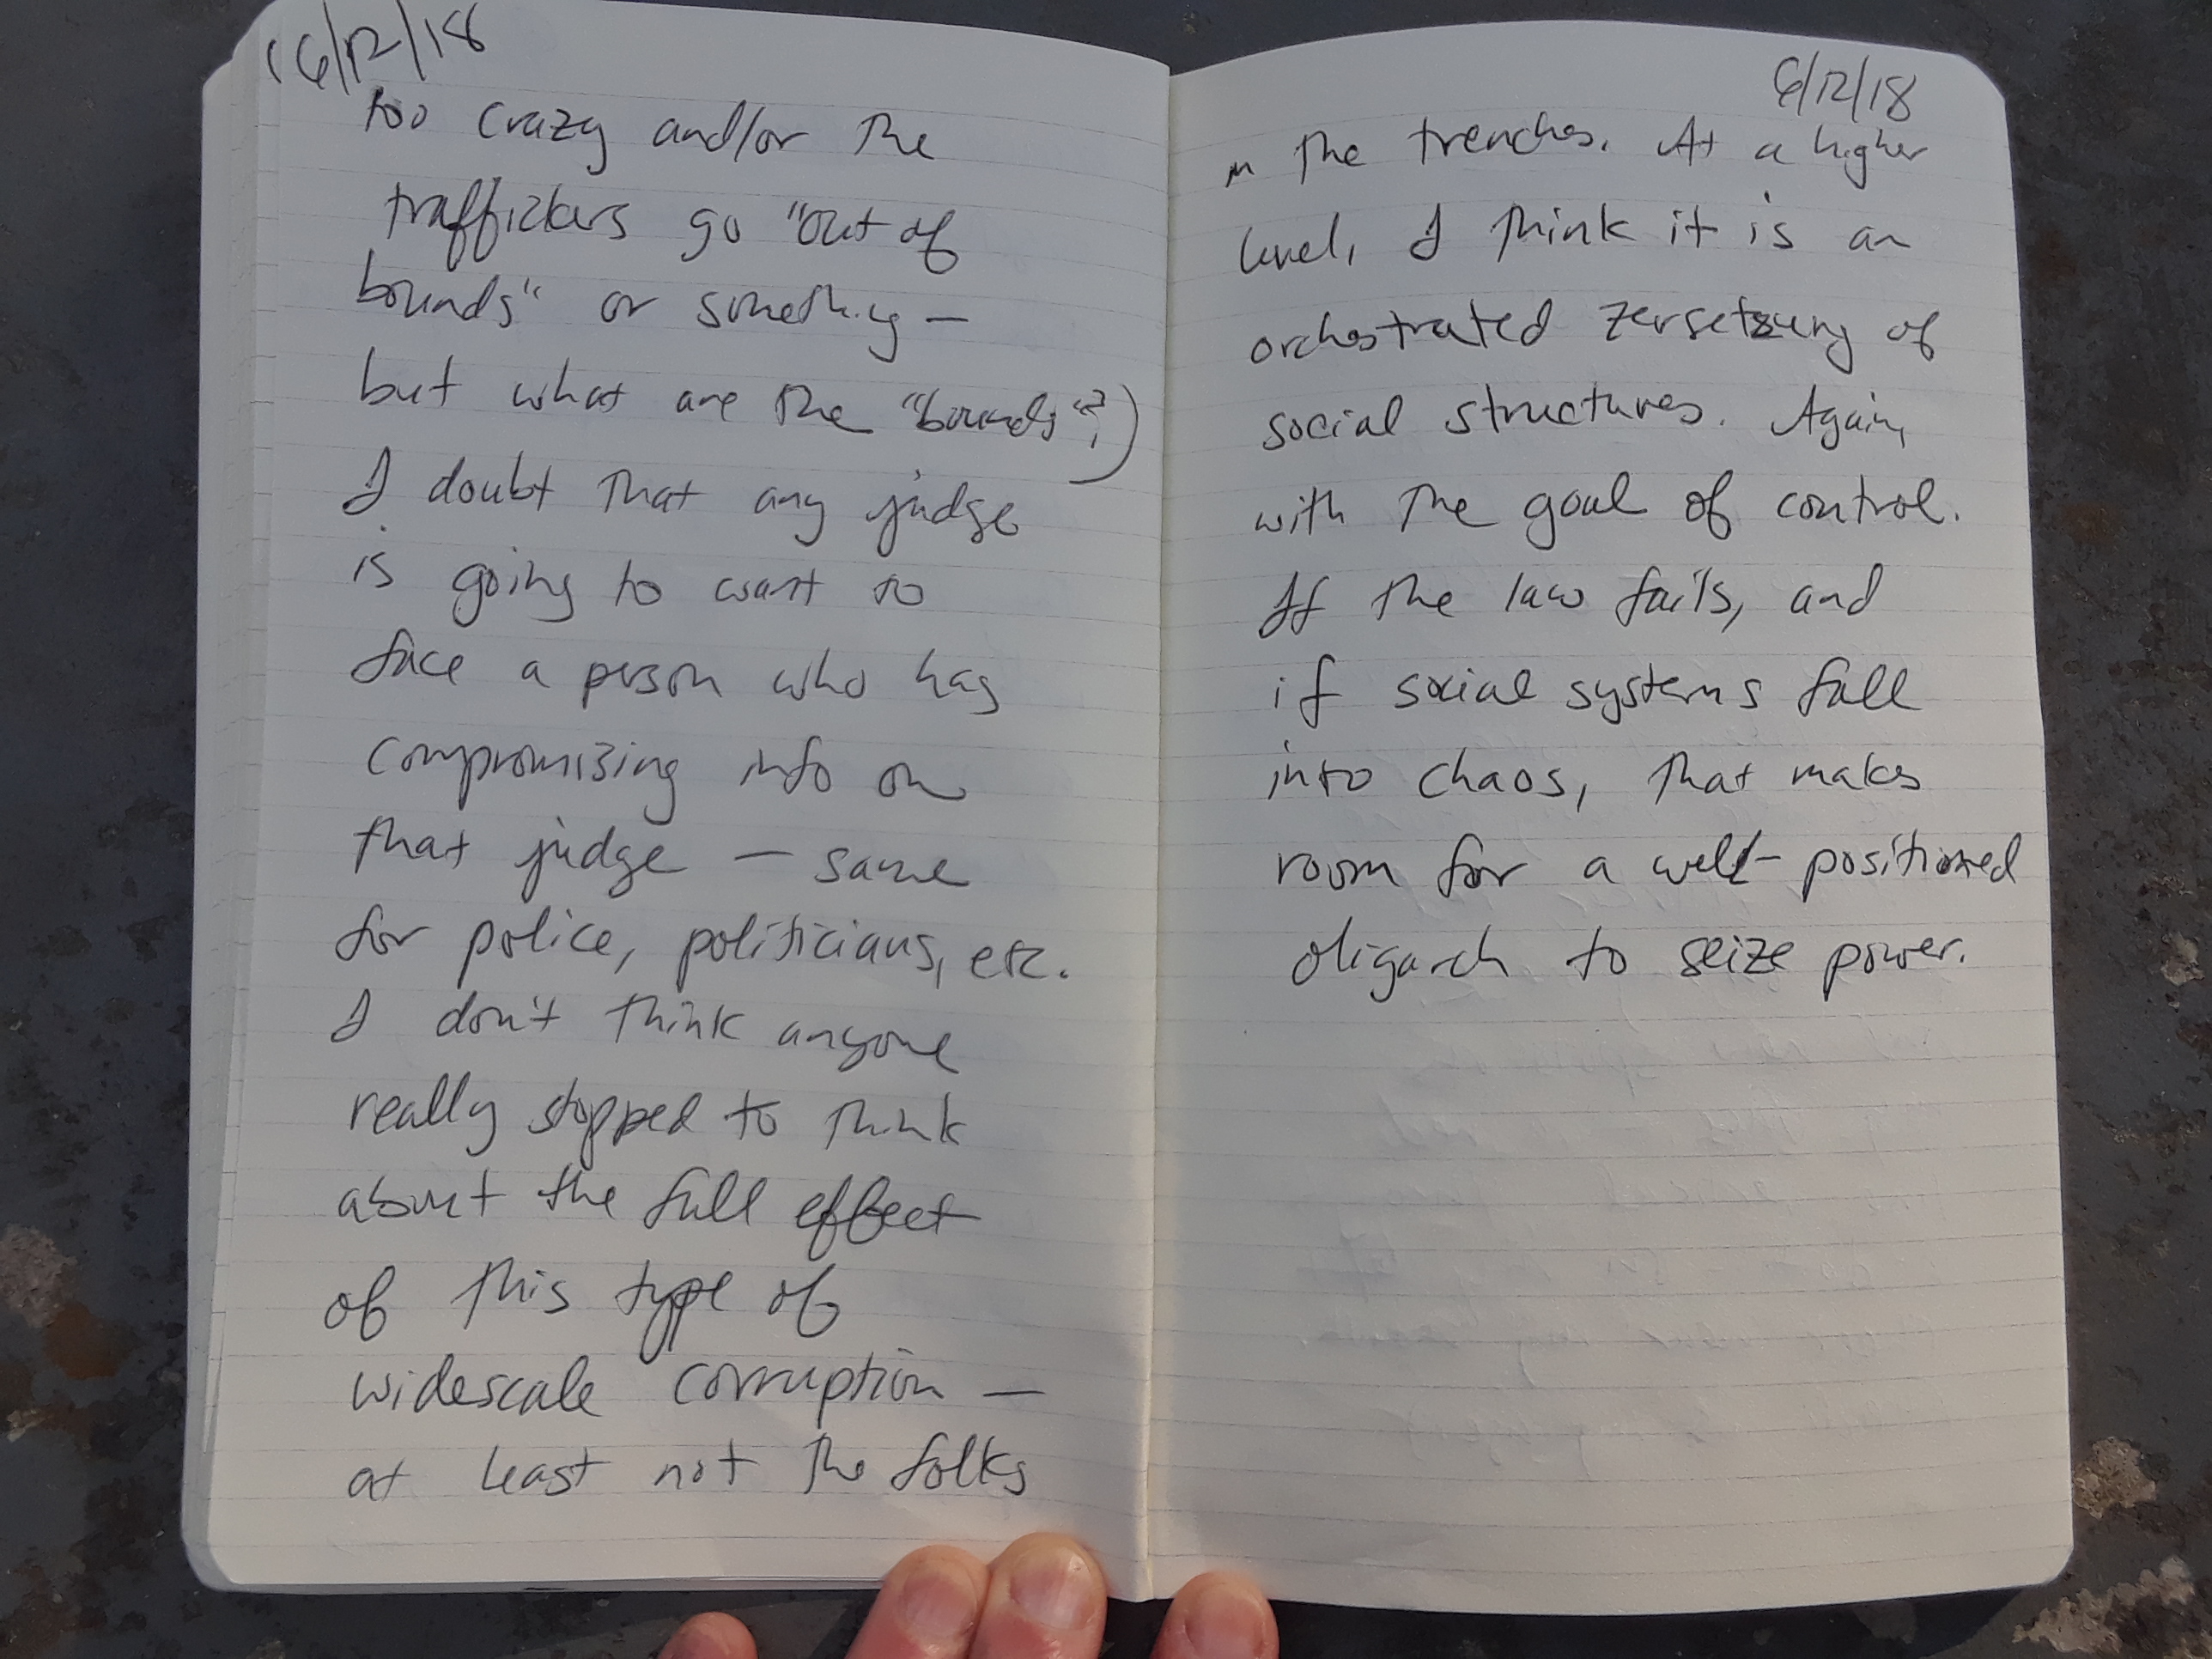 6/12/18
too crazy and/or the
traffickers go "out of
bounds" or something —
but what are the "bounds"?)
I doubt that any judge
is going to want to
face a person who has
compromising info on
that judge — same
for police, politicians, etc.
I don't think anyone
really stopped to think
about the full effect
of this type of
widescale corruption —
at least not the folks
6/12/18
in the trenches. At a higher
level, I think it is an
orchestrated zersetzung of
social structures. Again,
with the goal of control.
If the law fails, and
if social systems fall
into chaos, that makes
room for a well-positioned
oligarch to seize power.